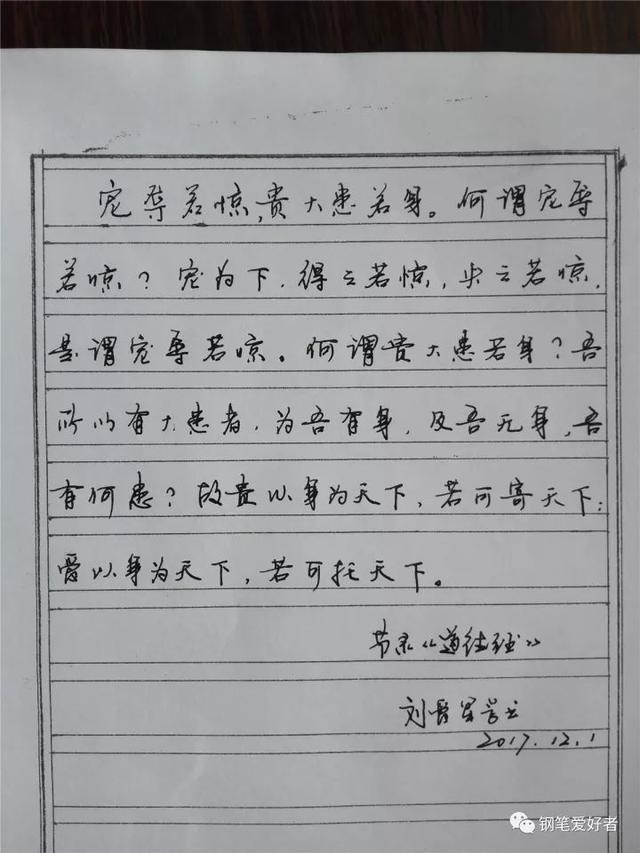 宠辱若惊，贵大患若身。何谓宠辱
若惊？宠为下，得之若惊，失之若惊，
是谓宠辱若惊。何谓贵大患若身？吾
所以有大患者，为吾有身，及吾无身，吾
有何患？故贵以身为天下，若可寄天下；
爱以身为天下，若可托天下。
节录《道德经》
刘
2017.12.1
钢笔爱好者